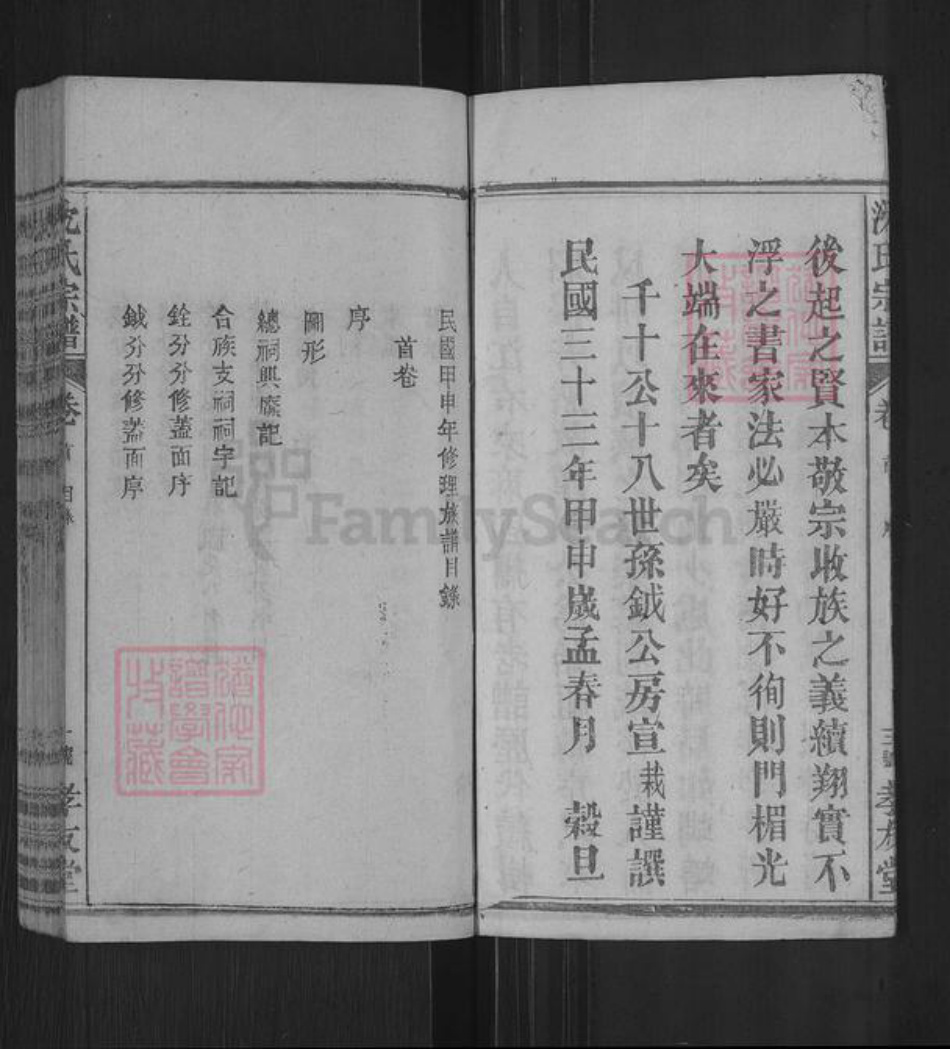 後起之賢本敬宗收族之義續翔實不
浮之書家法必嚴時好不徇則門楣光
大端在來者矣
千十公十八世孫鉞公房宣栽謹譔
民國三十三年甲申歲孟春月 穀旦
孝友堂
民國甲申年修理族譜目錄
首卷
序
圖形
總祠興廢記
合族支祠祠宇記
銓分分修蓋面序
鉞分分修蓋面序
沈氏宗譜 卷首 目錄 一號 孝友堂
FamilySearch